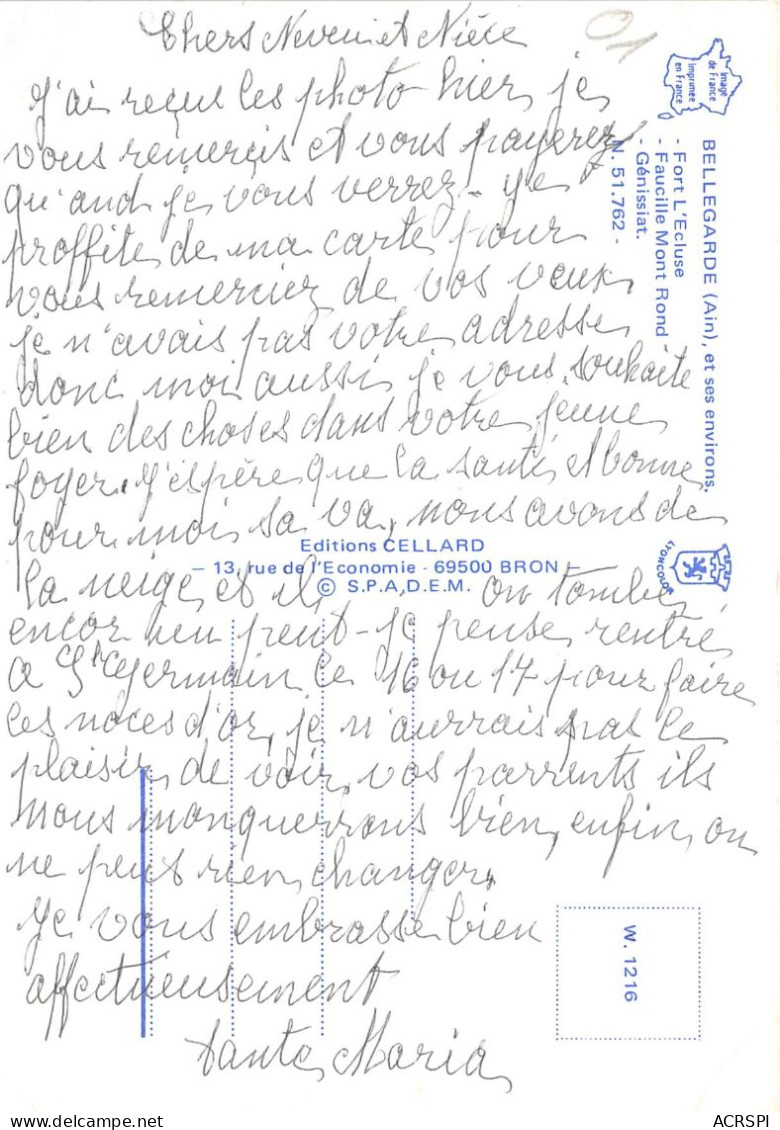 Chers Neveu et Nièce
01
J'ai reçus les photo hier, je
vous remercis et vous payerez
qu'and je vous verrez - je
proffite de ma carte pour
vous remerciez de vos vœux
je n'avais pas votre adresse
donc moi aussi je vous souhaite
bien des choses dans votre jeune
foyer. J'espère que la santé et bonne
pour moi sa va, nous avons de
la neige et il en tombe
encor un peut - je pense rentré
a St Germain le 16 ou 17 pour faire
les noces d'or, je n'aurrais pas le
plaisir de voir vos parrents ils
nous manquerrons bien, enfin on
ne peut rien changer,
Je vous embrasse bien
affectueusement
tante Maria
Image
de France
Imprimée
en France
BELLEGARDE (Ain), et ses environs.
- Fort L'Ecluse
- Faucille Mont Rond
- Génissiat.
N. 51.762 -
Editions CELLARD
— 13, rue de l'Economie - 69500 BRON —
© S.P.A.D.E.M.
W. 1216
ACRSPI